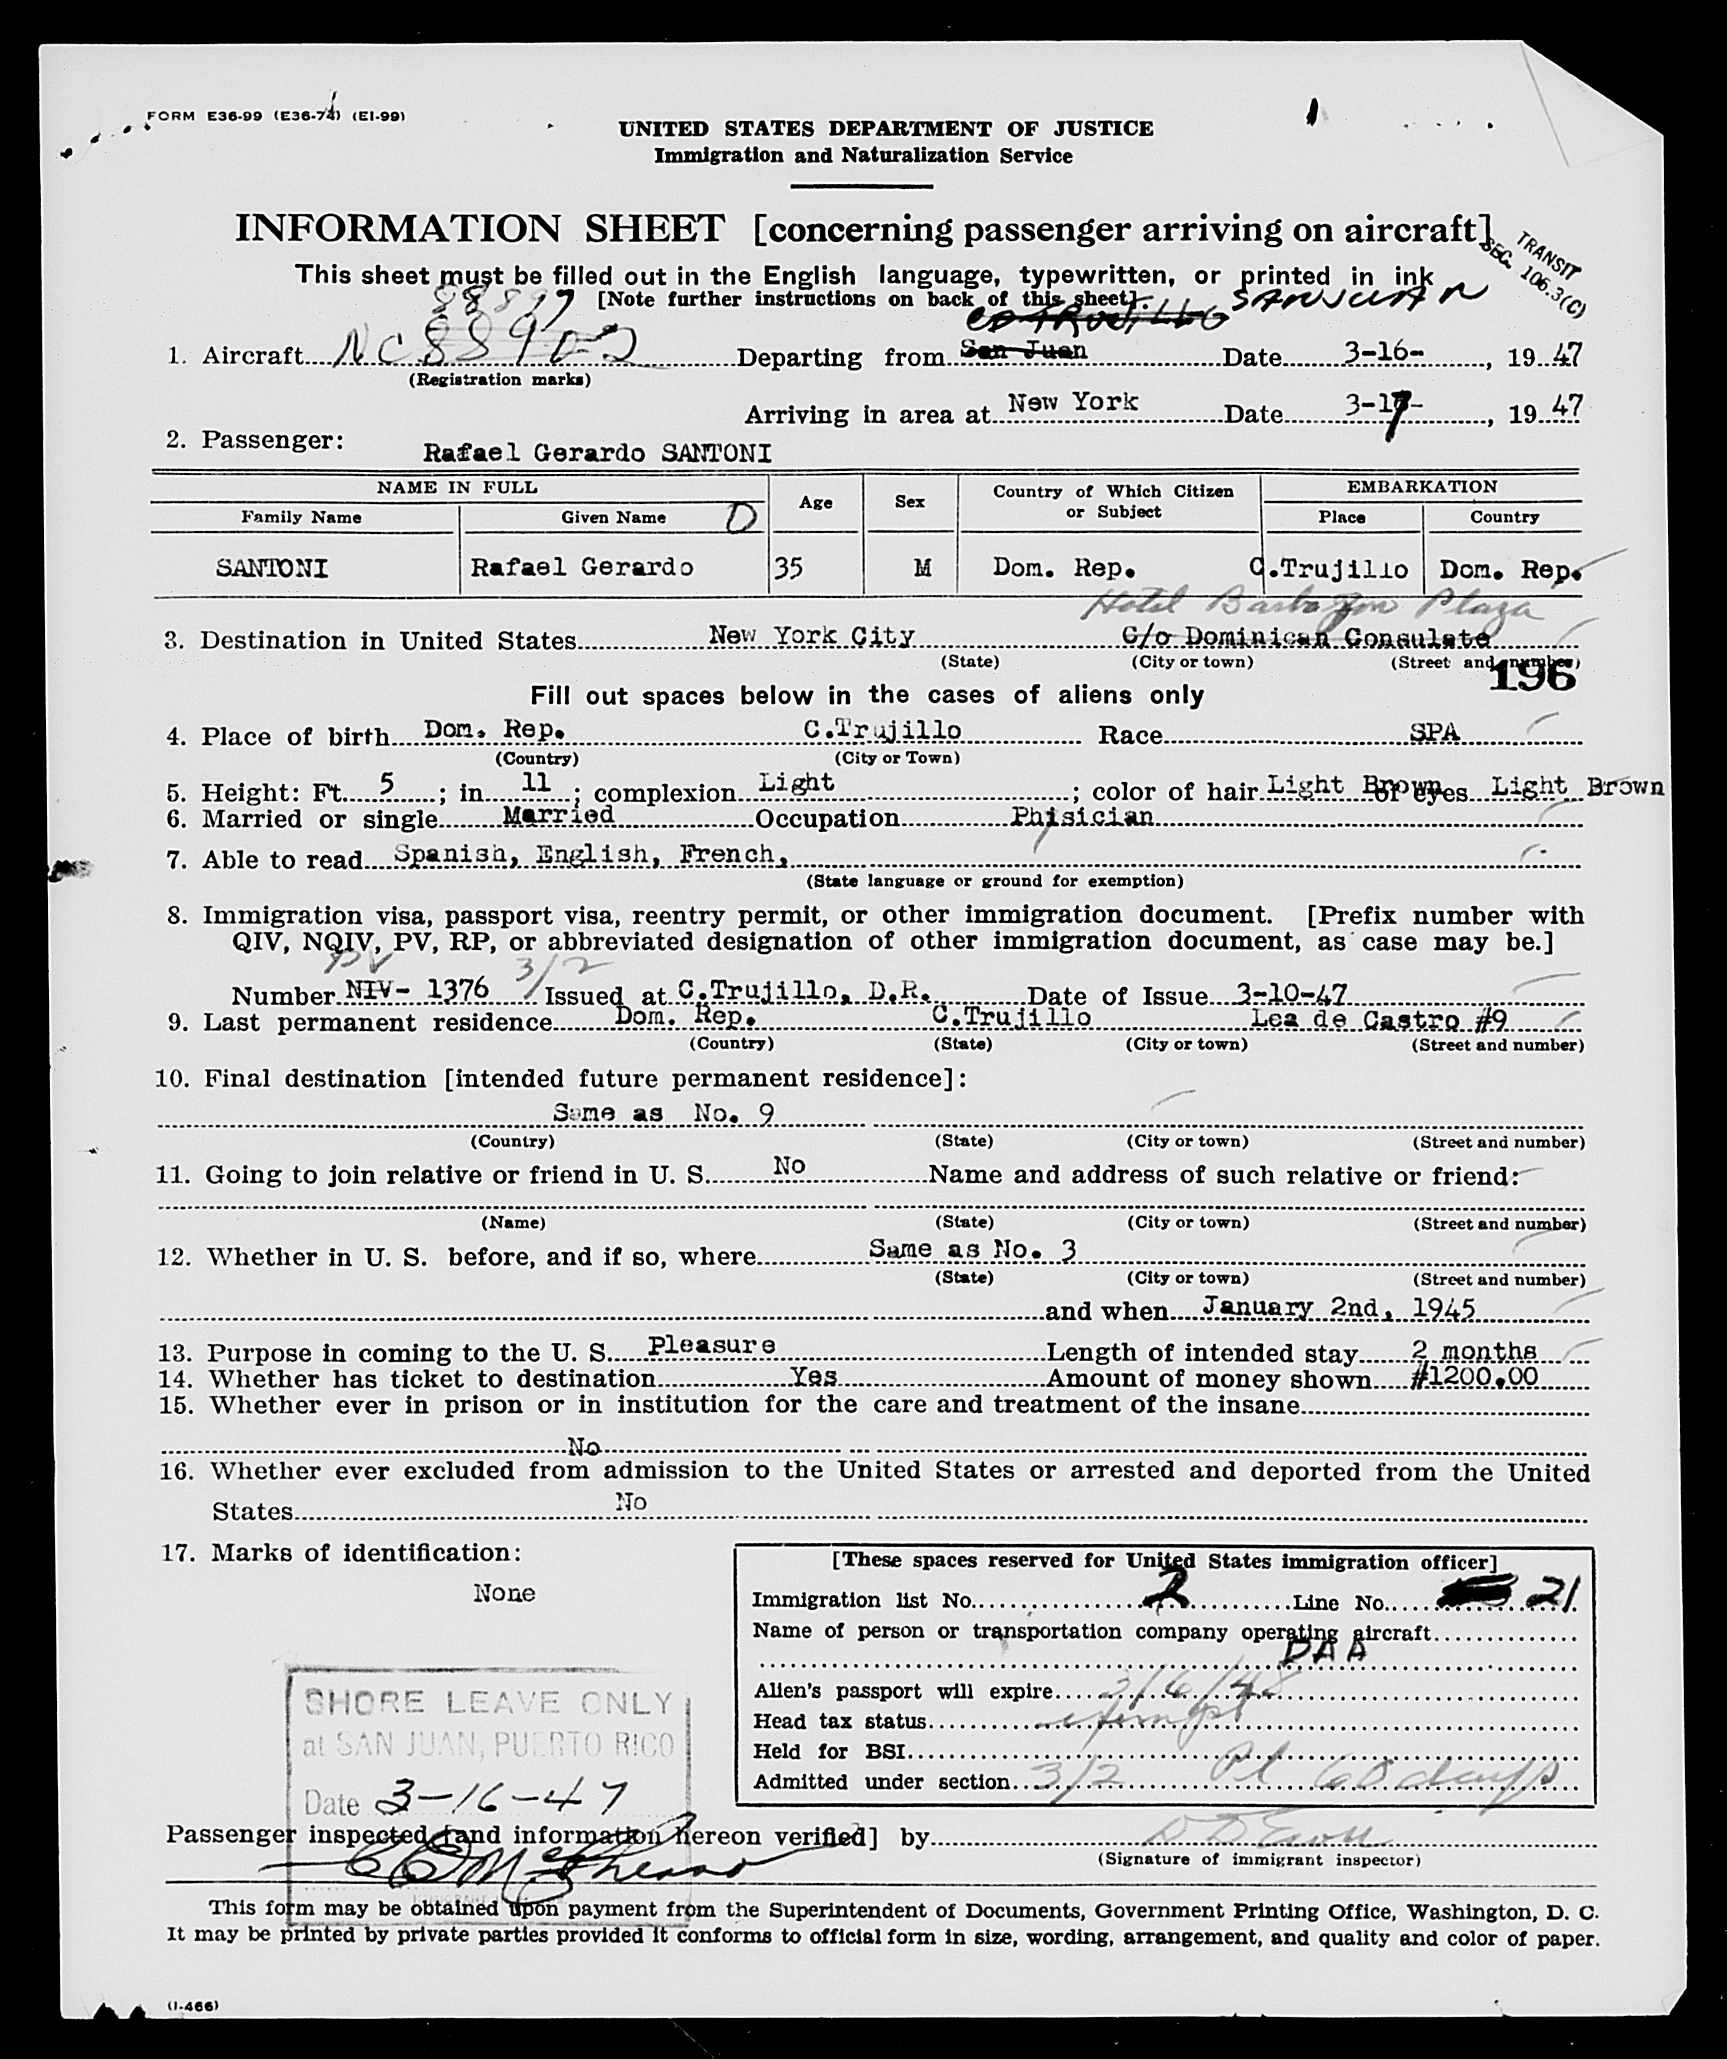 FORM E36-99 (E36-74) (EI-99)
1
UNITED STATES DEPARTMENT OF JUSTICE
Immigration and Naturalization Service
INFORMATION SHEET [concerning passenger arriving on aircraft]
TRANSIT
SEC. 106.3(C)
This sheet must be filled out in the English language, typewritten, or printed in ink
[Note further instructions on back of this sheet]
88897
CD TRUJILLO SAN JUAN
1. Aircraft NC 88902 Departing from San Juan Date 3-16-, 19 47
(Registration marks)
Arriving in area at New York Date 3-17-, 19 47
2. Passenger: Rafael Gerardo SANTONI
NAME IN FULL Age Sex Country of Which Citizen or Subject EMBARKATION
Family Name Given Name D Place Country
SANTONI Rafael Gerardo 35 M Dom. Rep. C.Trujillo Dom. Rep.
Hotel Barbazon Plaza
3. Destination in United States New York City C/o Dominican Consulate
(State) (City or town) (Street and number)
196
Fill out spaces below in the cases of aliens only
4. Place of birth Dom. Rep. C.Trujillo Race SPA
(Country) (City or Town)
5. Height: Ft. 5; in. 11; complexion Light; color of hair Light Brown of eyes Light Brown
6. Married or single Married Occupation Phisician
7. Able to read Spanish, English, French,
(State language or ground for exemption)
8. Immigration visa, passport visa, reentry permit, or other immigration document. [Prefix number with
QIV, NQIV, PV, RP, or abbreviated designation of other immigration document, as case may be.]
PV 3/2
Number NIV- 1376 Issued at C.Trujillo, D.R. Date of Issue 3-10-47
9. Last permanent residence Dom. Rep. C.Trujillo Lea de Castro #9
(Country) (State) (City or town) (Street and number)
10. Final destination [intended future permanent residence]:
Same as No. 9
(Country) (State) (City or town) (Street and number)
11. Going to join relative or friend in U. S. No Name and address of such relative or friend:
(Name) (State) (City or town) (Street and number)
12. Whether in U. S. before, and if so, where Same as No. 3
(State) (City or town) (Street and number)
and when January 2nd, 1945
13. Purpose in coming to the U. S. Pleasure Length of intended stay 2 months
14. Whether has ticket to destination Yes Amount of money shown #1200.00
15. Whether ever in prison or in institution for the care and treatment of the insane
No
16. Whether ever excluded from admission to the United States or arrested and deported from the United
States No
17. Marks of identification:
None
[These spaces reserved for United States immigration officer]
Immigration list No. 2 Line No. 21
Name of person or transportation company operating aircraft
PAA
Alien's passport will expire 3/6/48
Head tax status exempt
Held for BSI
Admitted under section 3/2 Pl 60 days
SHORE LEAVE ONLY
at SAN JUAN, PUERTO RICO
Date 3-16-47
Passenger inspected [and information hereon verified] by
(Signature of immigrant inspector)
This form may be obtained upon payment from the Superintendent of Documents, Government Printing Office, Washington, D. C.
It may be printed by private parties provided it conforms to official form in size, wording, arrangement, and quality and color of paper.
(I-466)